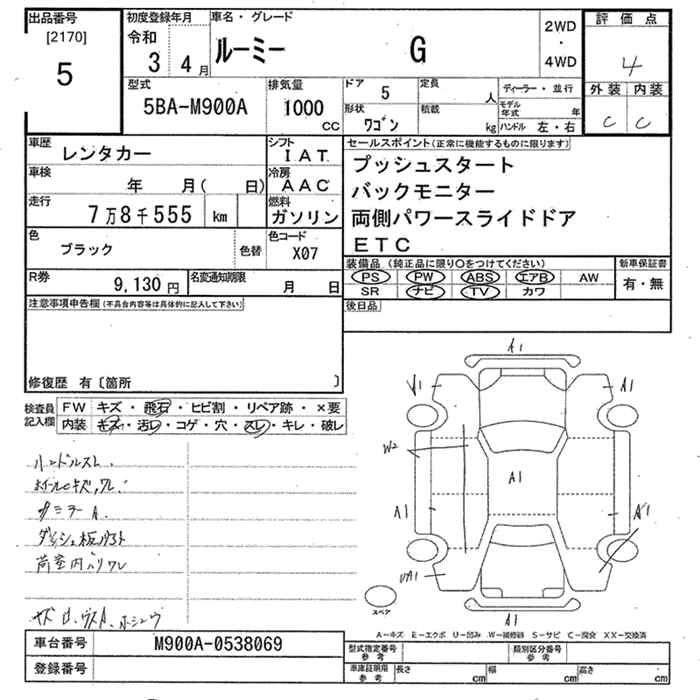 出品番号
[2170]
5
初度登録年月
令和
3 4月
車名・グレード
ルーミー G
2WD
・
4WD
評価点
4
外装 内装
C C
型式
5BA-M900A
排気量
1000
cc
ドア
5
定員
人
形状
ワゴン
積載
kg
ディーラー・並行
モデル年式 年
ハンドル 左・右
車歴
レンタカー
シフト
IAT
車検
年 月( 日)
冷房
AAC
走行
7万8千555 km
燃料
ガソリン
色
ブラック
色替
色コード
X07
R券
9,130円
名変通知期限
月 日
セールスポイント(正常に機能するものに限ります)
プッシュスタート
バックモニター
両側パワースライドドア
ETC
装備品 (純正品に限り○をつけてください)
PS PW ABS エアB AW
SR ナビ TV カワ
新車保証書
有・無
後日品
注意事項申告欄(不具合内容等は具体的に記入して下さい)
修復歴 有〔箇所 〕
検査員記入欄
FW キズ・飛石・ヒビ割・リペア跡・×要
内装 キズ・汚レ・コゲ・穴・スレ・キレ・破レ
ハンドルスレ.
ホイールキズ,ワレ.
サミラーA.
荷室内ハリワレ
A1
A1
W2
A1
A1
UA1
A1
スペア
A-キズ E-エクボ U-凹み W-補修跡 S-サビ C-腐食 XX-交換済
車台番号
M900A-0538069
登録番号
型式指定番号
参考
類別区分番号
参考
車庫証明用
参考
長さ cm
幅 cm
高さ cm